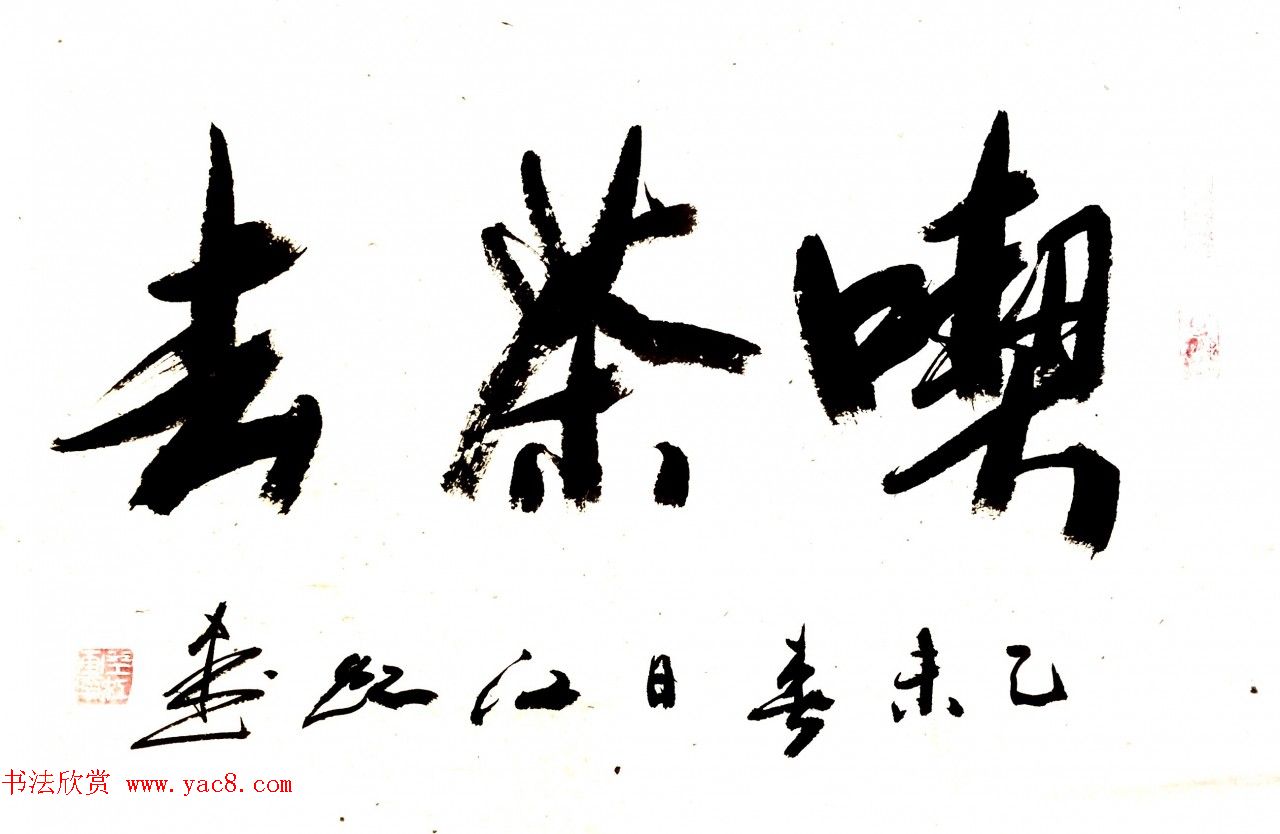 喫茶去
乙未春日江红书
书法欣赏 www.yac8.com